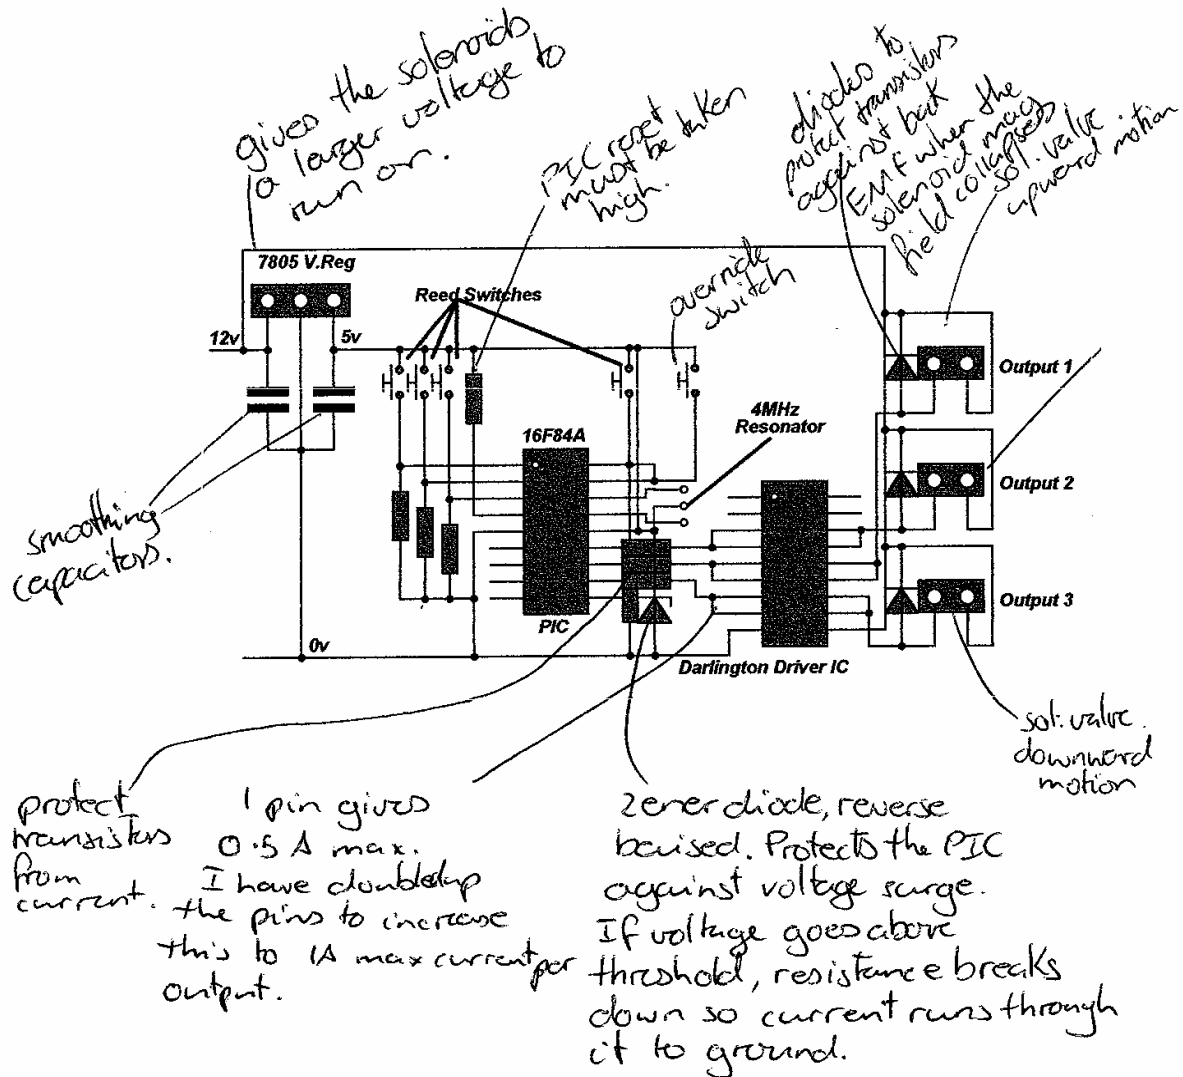 gives the solenoids
a larger voltage to
run on.
PIC reset
must be taken
high.
diodes to
protect transistors
against back
EMF when the
solenoid mag
field collapses
sol. valve.
upward motion
override
switch
7805 V.Reg
Reed Switches
12v
5v
Output 1
4MHz
Resonator
16F84A
Output 2
smoothing
capacitors.
Output 3
PIC
0v
Darlington Driver IC
sol. valve.
downward
motion
protect
transistors
from
current.
1 pin gives
0.5 A max.
I have doubled up
the pins to increase
this to 1A max current per
output.
Zener diode, reverse
baised. Protects the PIC
against voltage surge.
If voltage goes above
threshold, resistance breaks
down so current runs through
it to ground.